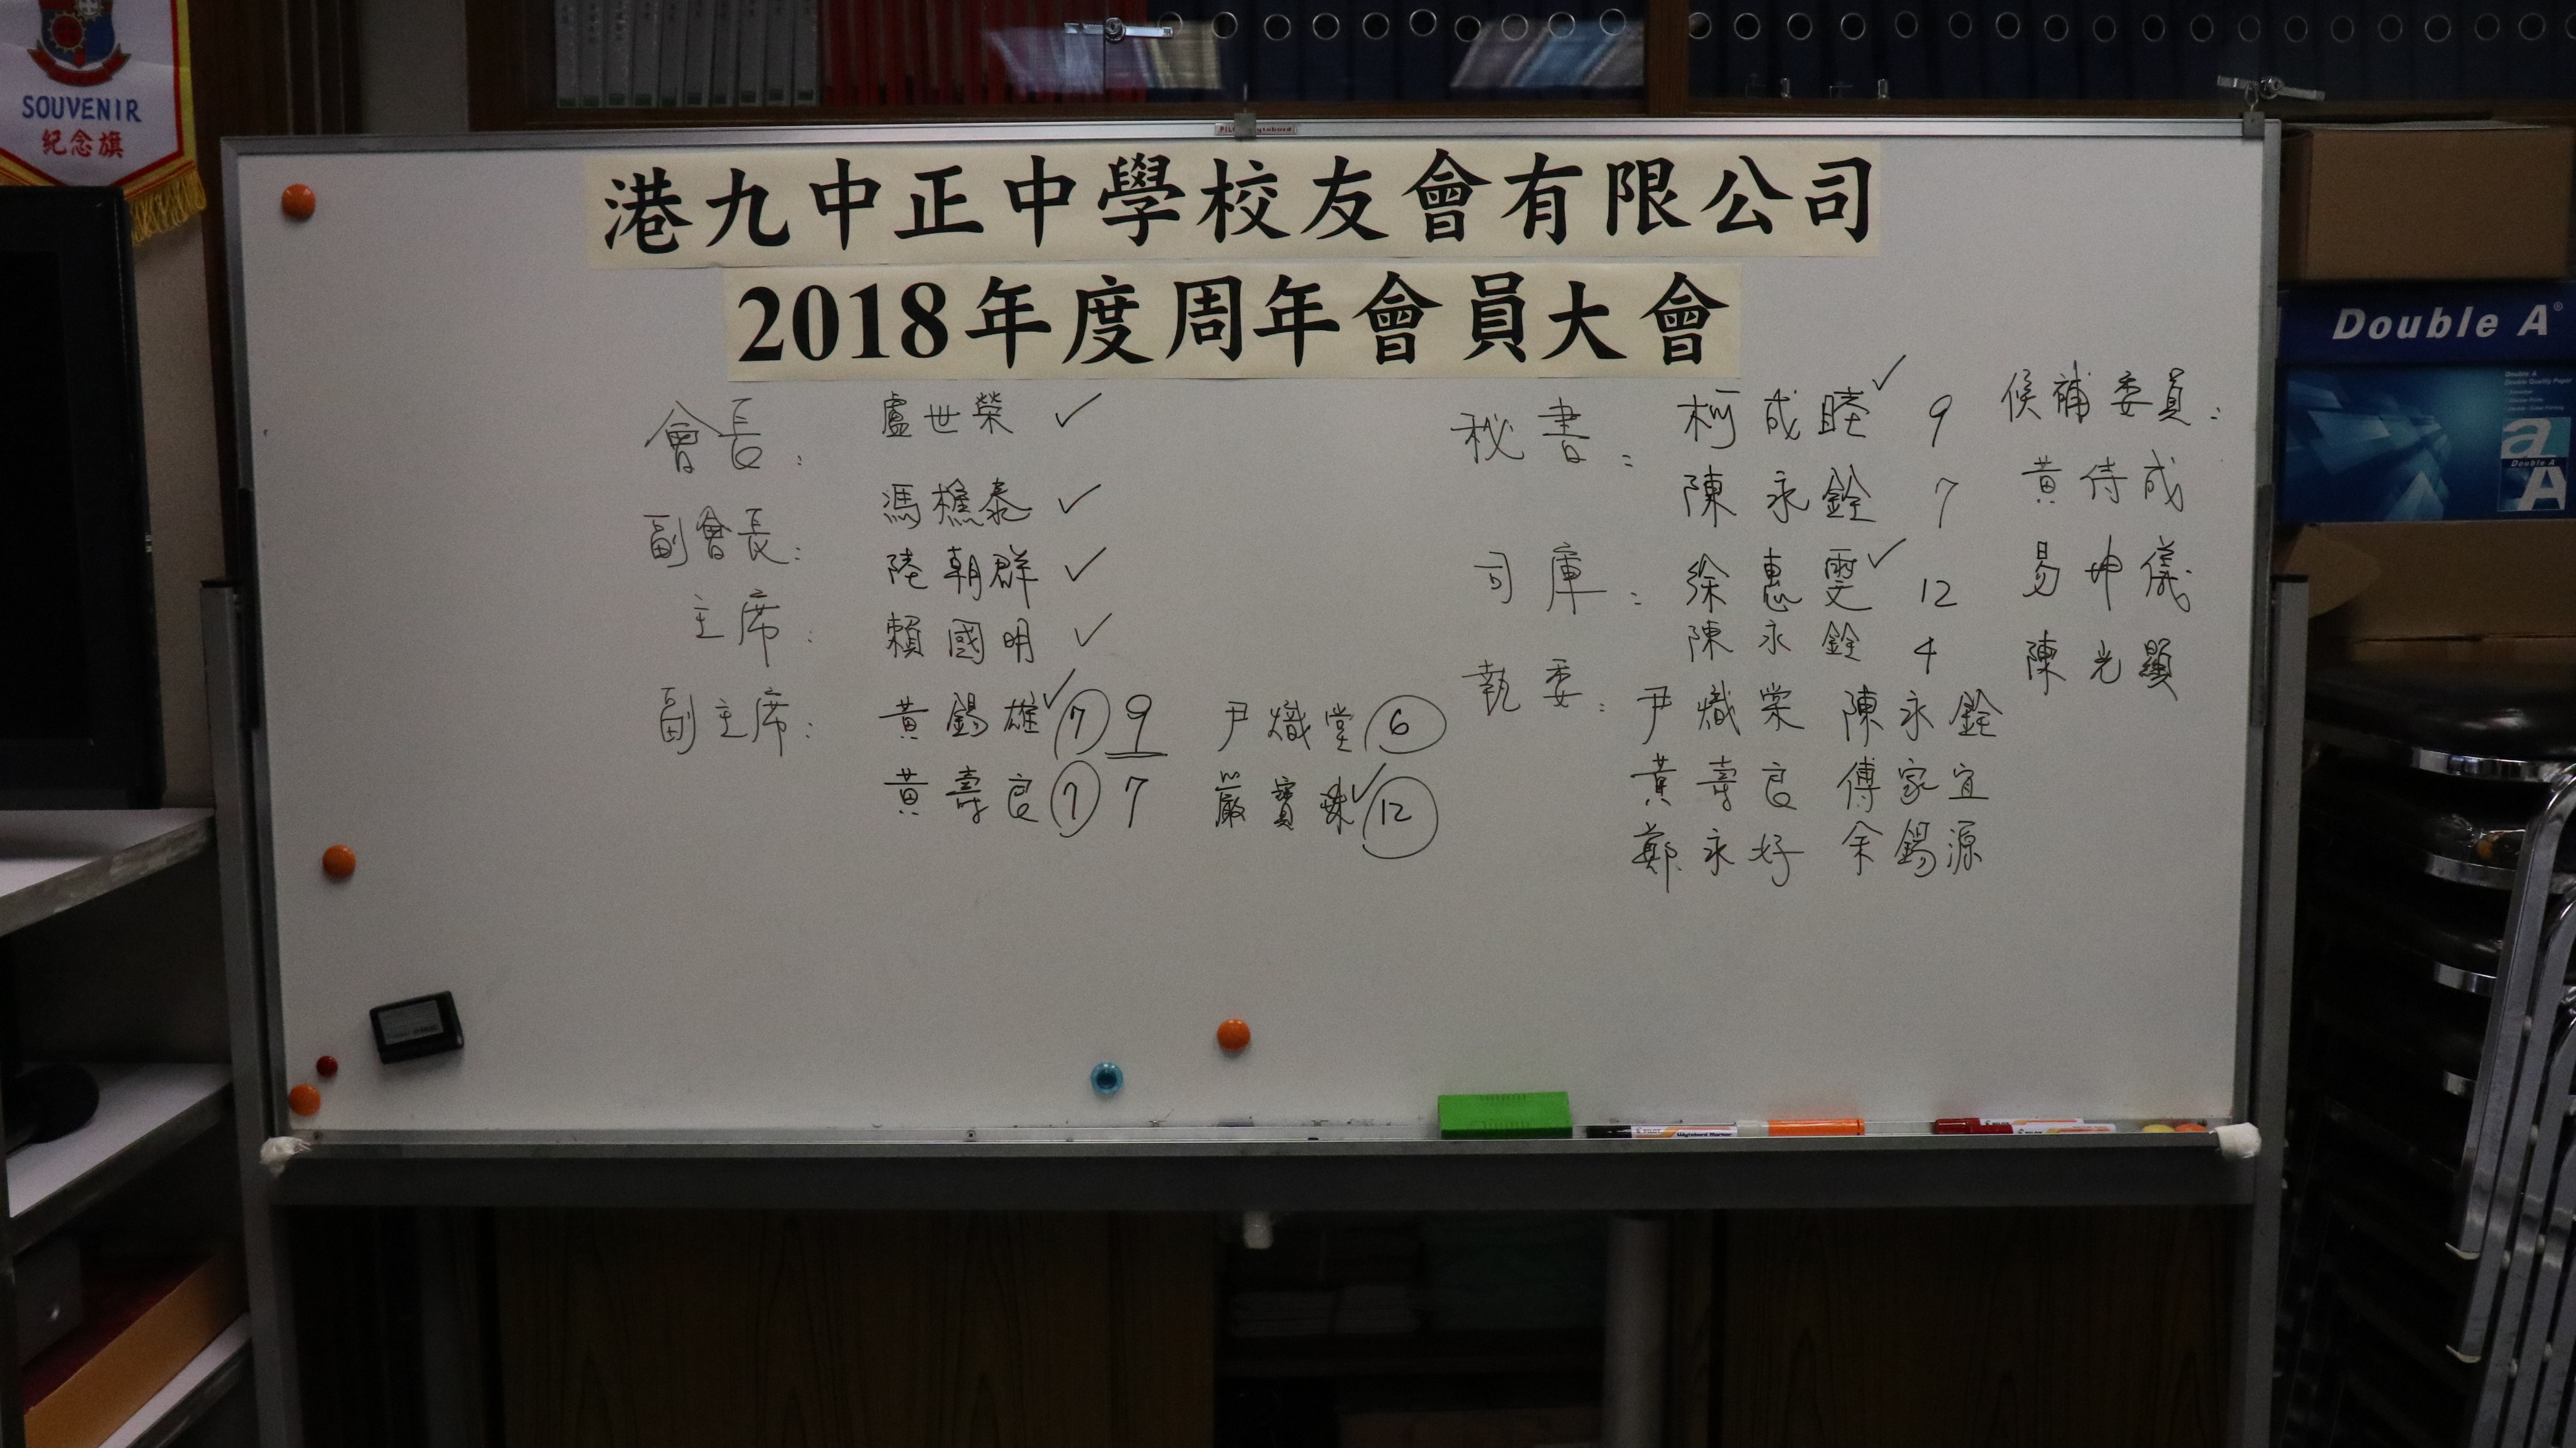 SOUVENIR
纪念旗
港九中正中學校友會有限公司
2018年度周年會員大會
會長: 盧世榮 ✓
副會長: 馮樵泰 ✓
陸朝群 ✓
主席: 賴國明 ✓
副主席: 黃錫雄 ✓ 7 9 尹熾棠 6
黃壽良 7 7 嚴寶珠 ✓ 12
秘書: 柯成睦 ✓ 9
陳永銓 7
司庫: 徐惠雯 ✓ 12
陳永銓 4
執委: 尹熾棠 陳永銓
黃壽良 傅家宜
鄭永好 余錫源
候補委員:
黃侍成
易坤儀
陳光顯
Double A
Double A
PILOT Wyteboard Marker